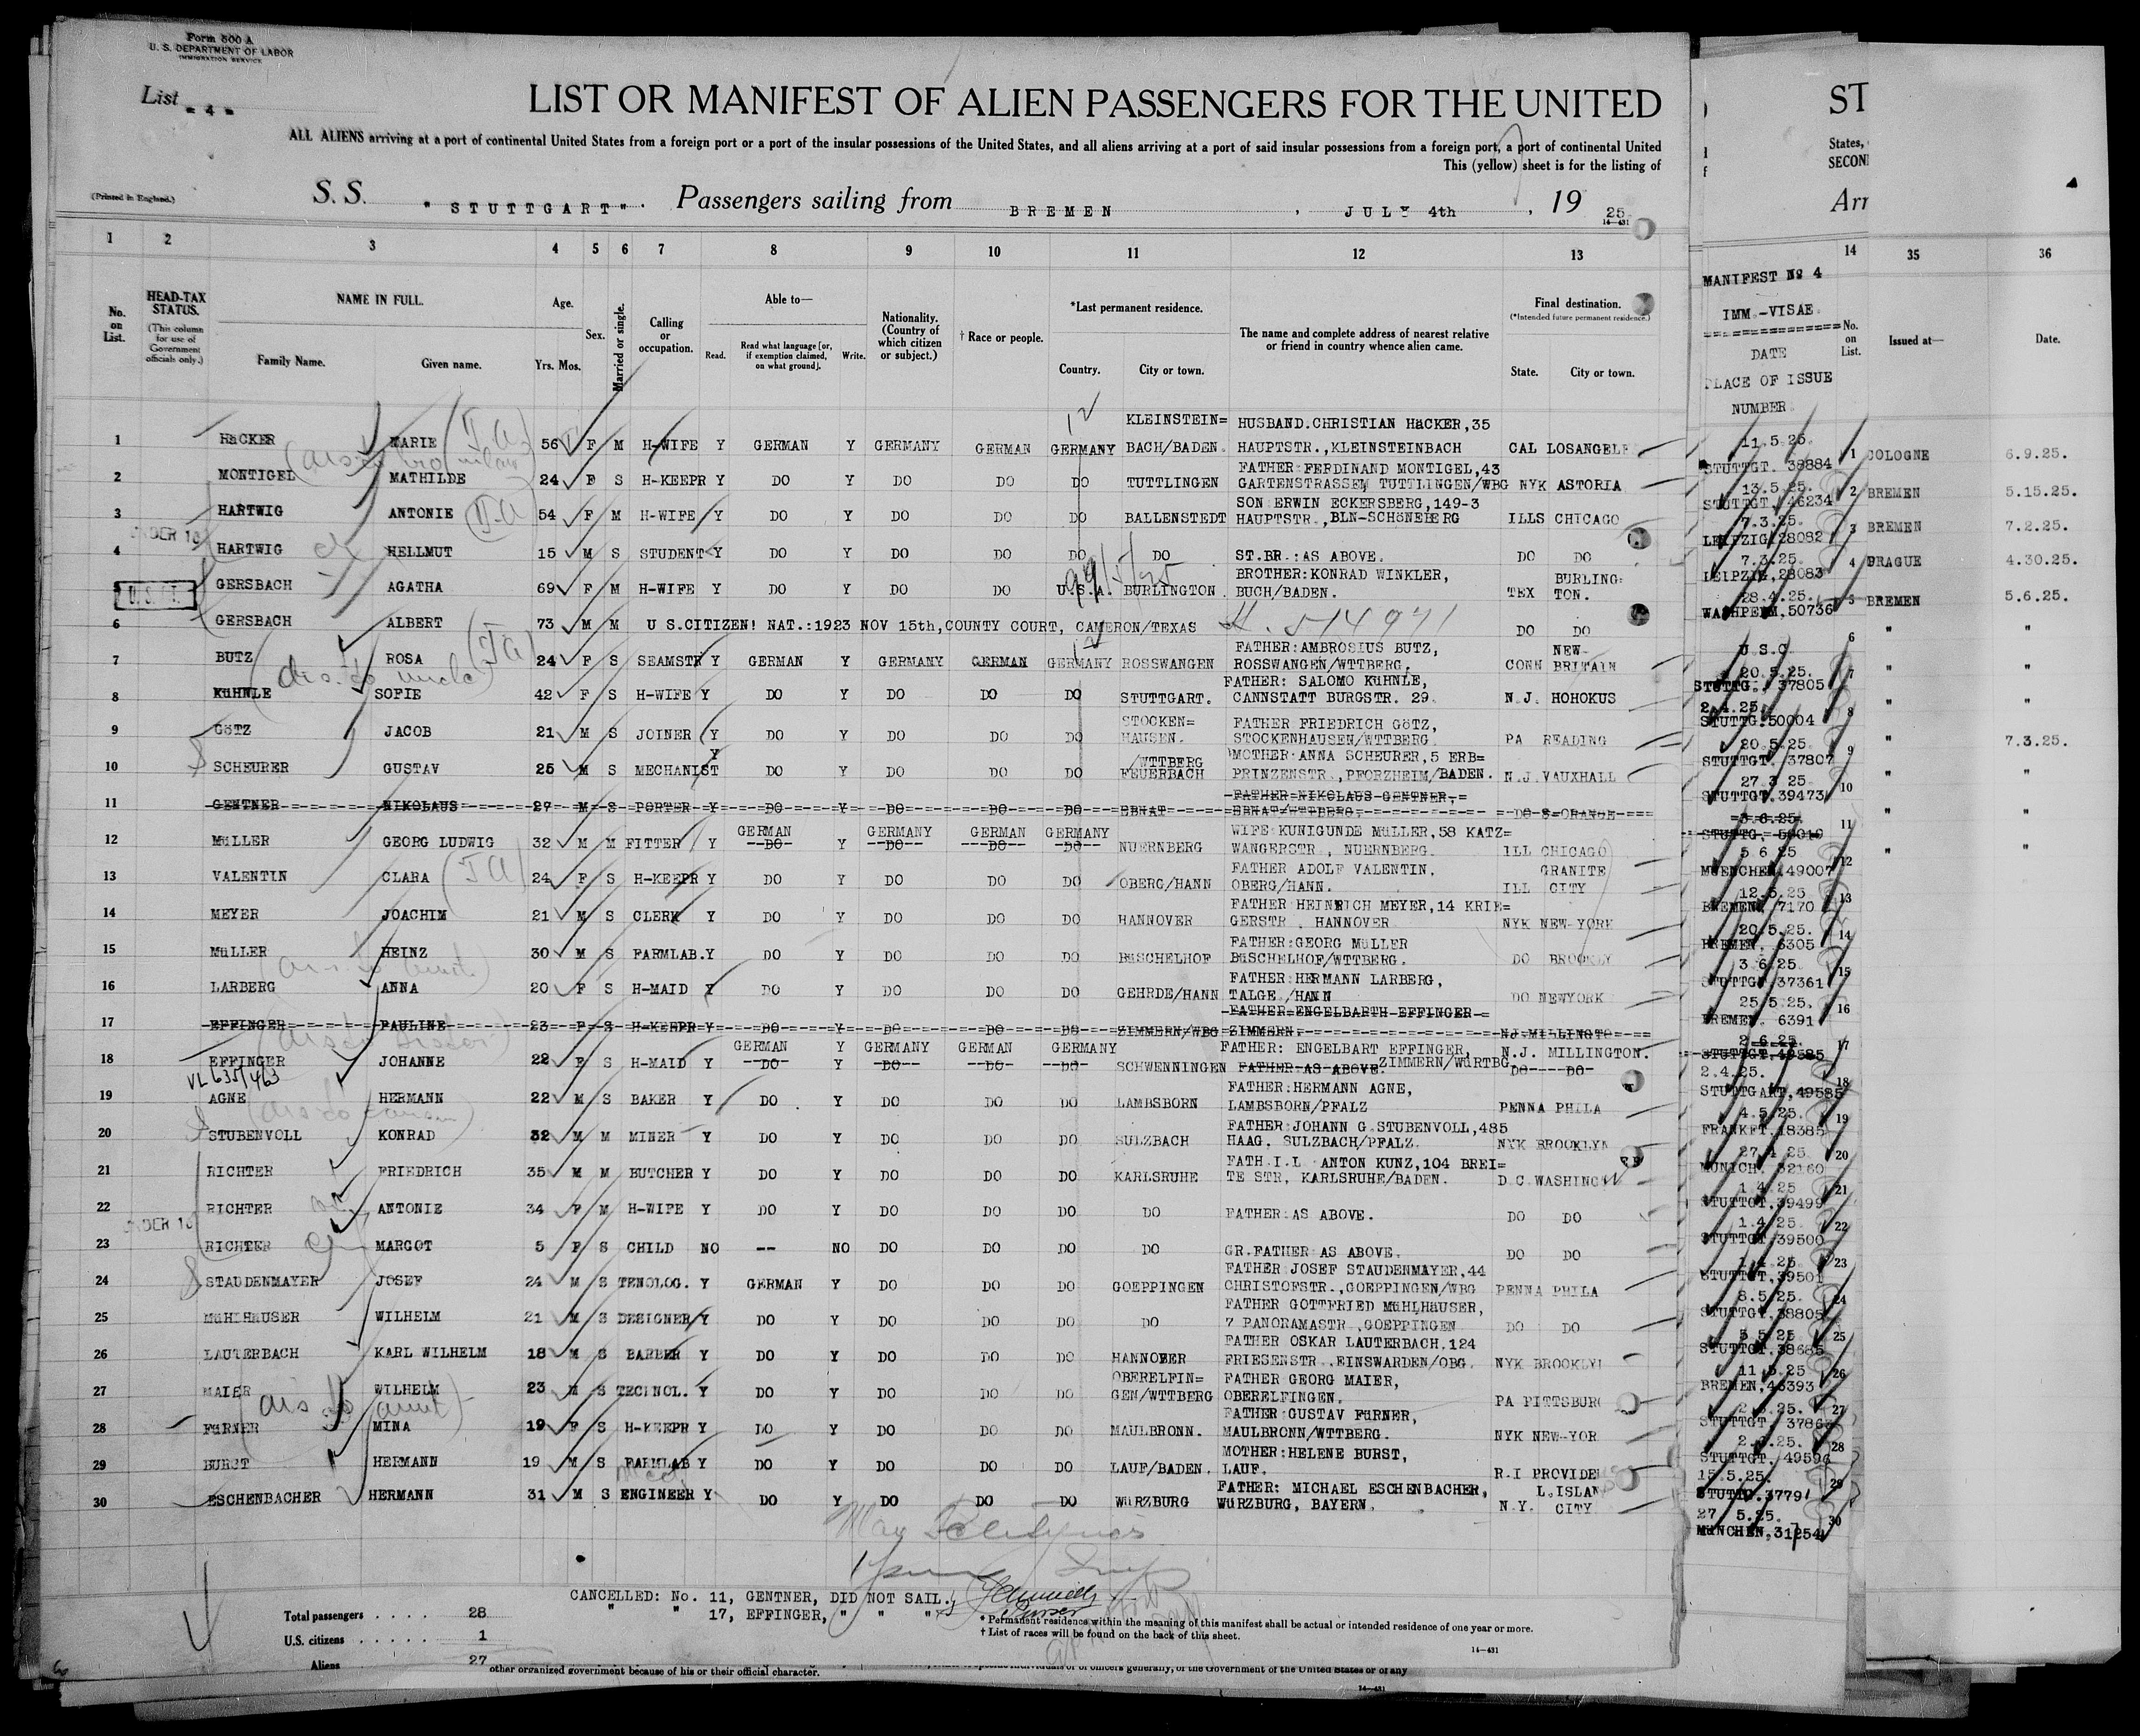 Form 500 A
U. S. DEPARTMENT OF LABOR
IMMIGRATION SERVICE
List - 4 -
LIST OR MANIFEST OF ALIEN PASSENGERS FOR THE UNITED
ALL ALIENS arriving at a port of continental United States from a foreign port or a port of the insular possessions of the United States, and all aliens arriving at a port of said insular possessions from a foreign port, a port of continental United
This (yellow) sheet is for the listing of
(Printed in England.)
S. S. "STUTTGART". Passengers sailing from BREMEN, JULY 4th, 19 25
14-431
1 2 3 4 5 6 7 8 9 10 11 12 13
No. on List.
HEAD-TAX STATUS.
(This column for use of Government officials only.)
NAME IN FULL.
Family Name. Given name.
Age.
Yrs. Mos.
Sex.
Married or single.
Calling or occupation.
Able to—
Read. Read what language [or, if exemption claimed, on what ground]. Write.
Nationality. (Country of which citizen or subject.)
† Race or people.
*Last permanent residence.
Country. City or town.
The name and complete address of nearest relative or friend in country whence alien came.
Final destination.
(*Intended future permanent residence.)
State. City or town.
KLEINSTEIN= HUSBAND.CHRISTIAN HäCKER,35
1 HäCKER MARIE 56 F M H-WIFE Y GERMAN Y GERMANY GERMAN GERMANY BACH/BADEN. HAUPTSTR.,KLEINSTEINBACH CAL LOSANGELE
FATHER FERDINAND MONTIGEL,43
2 MONTIGEL MATHILDE 24 F S H-KEEPR Y DO Y DO DO DO TUTTLINGEN GARTENSTRASSE, TUTTLINGEN/WBG NYK ASTORIA
SON ERWIN ECKERSBERG,149-3
3 HARTWIG ANTONIE 54 F M H-WIFE Y DO Y DO DO DO BALLENSTEDT HAUPTSTR.,BLN-SCHöNEBERG ILLS CHICAGO
4 HARTWIG HELLMUT 15 M S STUDENT Y DO Y DO DO DO DO ST.BR.:AS ABOVE. DO DO
BROTHER:KONRAD WINKLER, BURLING=
5 GERSBACH AGATHA 69 F M H-WIFE Y DO Y DO DO U.S.A. BURLINGTON. BUCH/BADEN. TEX TON.
6 GERSBACH ALBERT 73 M M U S.CITIZEN! NAT.:1923 NOV 15th,COUNTY COURT, CAMERON/TEXAS DO DO
FATHER:AMBROSIUS BUTZ, NEW-
7 BUTZ ROSA 24 F S SEAMSTR Y GERMAN Y GERMANY GERMAN GERMANY ROSSWANGEN ROSSWANGEN/WTTBERG. CONN BRITAIN
FATHER: SALOMO KüHNLE,
8 KüHNLE SOFIE 42 F S H-WIFE Y DO Y DO DO DO STUTTGART. CANNSTATT BURGSTR. 29. N.J. HOHOKUS
STOCKEN= FATHER FRIEDRICH GöTZ,
9 GöTZ JACOB 21 M S JOINER Y DO Y DO DO DO HAUSEN. STOCKENHAUSEN/WTTBERG. PA READING
/WTTBERG MOTHER:ANNA SCHEURER,5 ERB=
10 SCHEURER GUSTAV 25 M S MECHANIST Y DO Y DO DO DO FEUERBACH PRINZENSTR.,PFORZHEIM/BADEN. N.J.VAUXHALL
FATHER=NIKOLAUS GENTNER,=
11 GENTNER NIKOLAUS 27 M S PORTER Y DO Y DO DO DO DO S-ORANGE
GERMAN GERMANY GERMAN GERMANY WIFE KUNIGUNDE MüLLER,58 KATZ=
12 MüLLER GEORG LUDWIG 32 M M FITTER Y DO Y DO DO DO NUERNBERG WANGERSTR., NUERNBERG. ILL CHICAGO
FATHER ADOLF VALENTIN. GRANITE
13 VALENTIN CLARA 24 F S H-KEEPR Y DO Y DO DO DO OBERG/HANN OBERG/HANN. ILL CITY
FATHER HEINRICH MEYER,14 KRIE=
14 MEYER JOACHIM 21 M S CLERK Y DO Y DO DO DO HANNOVER GERSTR. HANNOVER NYK NEW-YORK
FATHER:GEORG MüLLER
15 MüLLER HEINZ 30 M S FARMLAB. Y DO Y DO DO DO BüSCHELHOF BüSCHELHOF/WTTBERG. DO BROOKLY
FATHER:HERMANN LARBERG,
16 LARBERG ANNA 20 F S H-MAID Y DO Y DO DO DO GEHRDE/HANN TALGE /HANN DO NEWYORK
FATHER=ENGELBARTH EFFINGER=
17 EFFINGER PAULINE 23 F S H-KEEPR Y DO Y DO DO DO ZIMMERN/WBG ZIMMERN. NJ.MILLINGTO
GERMAN Y GERMANY GERMAN GERMANY FATHER: ENGELBART EFFINGER, N.J. MILLINGTON.
18 EFFINGER JOHANNE 22 F S H-MAID Y DO Y DO DO DO SCHWENNINGEN FATHER AS ABOVE. ZIMMERN/WüRTBG. DO DO
VL 635/463 FATHER:HERMANN AGNE,
19 AGNE HERMANN 22 M S BAKER Y DO Y DO DO DO LAMBSBORN LAMBSBORN/PFALZ PENNA PHILA
FATHER:JOHANN G.STUBENVOLL,485
20 STUBENVOLL KONRAD 32 M M MINER Y DO Y DO DO DO SULZBACH HAAG. SULZBACH/PFALZ. NYK BROOKLYN
FATH.I.L ANTON KUNZ,104 BREI=
21 RICHTER FRIEDRICH 35 M M BUTCHER Y DO Y DO DO DO KARLSRUHE TE STR, KARLSRUHE/BADEN. D C WASHING
22 RICHTER ANTONIE 34 F M H-WIFE Y DO Y DO DO DO DO FATHER:AS ABOVE. DO DO
23 RICHTER MARGOT 5 F S CHILD NO -- NO DO DO DO DO GR.FATHER AS ABOVE. DO DO
FATHER JOSEF STAUDENMAYER,44
24 STAUDENMAYER JOSEF 24 M S TENOLOG. Y GERMAN Y DO DO DO GOEPPINGEN CHRISTOFSTR.,GOEPPINGEN/WBG PENNA PHILA
FATHER GOTTFRIED MüHLHäUSER,
25 MüHLHäUSER WILHELM 21 M S DESIGNER Y DO Y DO DO DO DO 7 PANORAMASTR.,GOEPPINGEN DO DO
FATHER OSKAR LAUTERBACH.124
26 LAUTERBACH KARL WILHELM 18 M S BARBER Y DO Y DO DO DO HANNOVER FRIESENSTR..EINSWARDEN/OBG. NYK BROOKLYN
OBERELFIN= FATHER GEORG MAIER,
27 MAIER WILHELM 23 M S TECHNOL. Y DO Y DO DO DO GEN/WTTBERG OBERELFINGEN. PA PITTSBURG
FATHER:GUSTAV FüRNER,
28 FüRNER MINA 19 F S H-KEEPR Y DO Y DO DO DO MAULBRONN. MAULBRONN/WTTBERG. NYK NEW-YOR
MOTHER:HELENE BURST,
29 BURST HERMANN 19 M S FARMLAB Y DO Y DO DO DO LAUF/BADEN. LAUF. R.I PROVIDE
FATHER: MICHAEL ESCHENBACHER, L.ISLAN
30 ESCHENBACHER HERMANN 31 M S ENGINEER Y DO Y DO DO DO WüRZBURG WüRZBURG, BAYERN. N.Y. CITY
CANCELLED: No. 11, GENTNER, DID NOT SAIL.
" " 17, EFFINGER, " " "
Purser
Total passengers 28
U.S. citizens 1
Aliens 27
* Permanent residence within the meaning of this manifest shall be actual or intended residence of one year or more.
† List of races will be found on the back of this sheet.
14-431
other organized government because of his or their official character.
14-431
ST
States,
SECON
Arr
14 35 36
MANIFEST No 4
IMM.-VISAE
DATE
PLACE OF ISSUE
NUMBER
No. on List. Issued at— Date.
11.5.25.
STUTTGT. 38884 1 COLOGNE 6.9.25.
13.5.25.
STUTTGT. 46234 2 BREMEN 5.15.25.
7.3.25.
LEIPZIG,28082 3 BREMEN 7.2.25.
7.3.25.
LEIPZIG,28083 4 PRAGUE 4.30.25.
28.4.25.
WASHPERM.50736 5 BREMEN 5.6.25.
U.S.C 6 " "
20.5.25.
STUTTG. 37805 7 " "
2.4.25.
STUTTG.50004 8 " "
20.5.25.
STUTTGT. 37807 9 " 7.3.25.
27.3 25
STUTTGT.39473 10 " "
3.6.25.
STUTTG. 50010 11 " "
5 6 25
MUENCHEN.49007 12 " "
12.5.25
BREMEN. 7170 13
20.5.25.
BREMEN. 6305 14
3 6.25.
STUTTGT 37361 15
25/5 25.
BREMEN. 6391 16
2.6.25.
STUTTGT.49585 17
2.4.25.
STUTTGART,49585 18
4.5.25.
FRANKFT.18385 19
27.4 25.
MUNICH. 32160 20
1.4.25
STUTTGT.39499 21
1.4.25
STUTTGT.39500 22
1.4 25
STUTTGT.39501 23
8.5.25.
STUTTGT.38805 24
5 5 25
STUTTGT.38685 25
11.5.25
BREMEN,46393 26
STUTTGT. 27
2.6.25.
STUTTGT. 49596 28
15.5.25.
STUTTG.3779 29
27 5.25.
MüNCHEN,31254 30